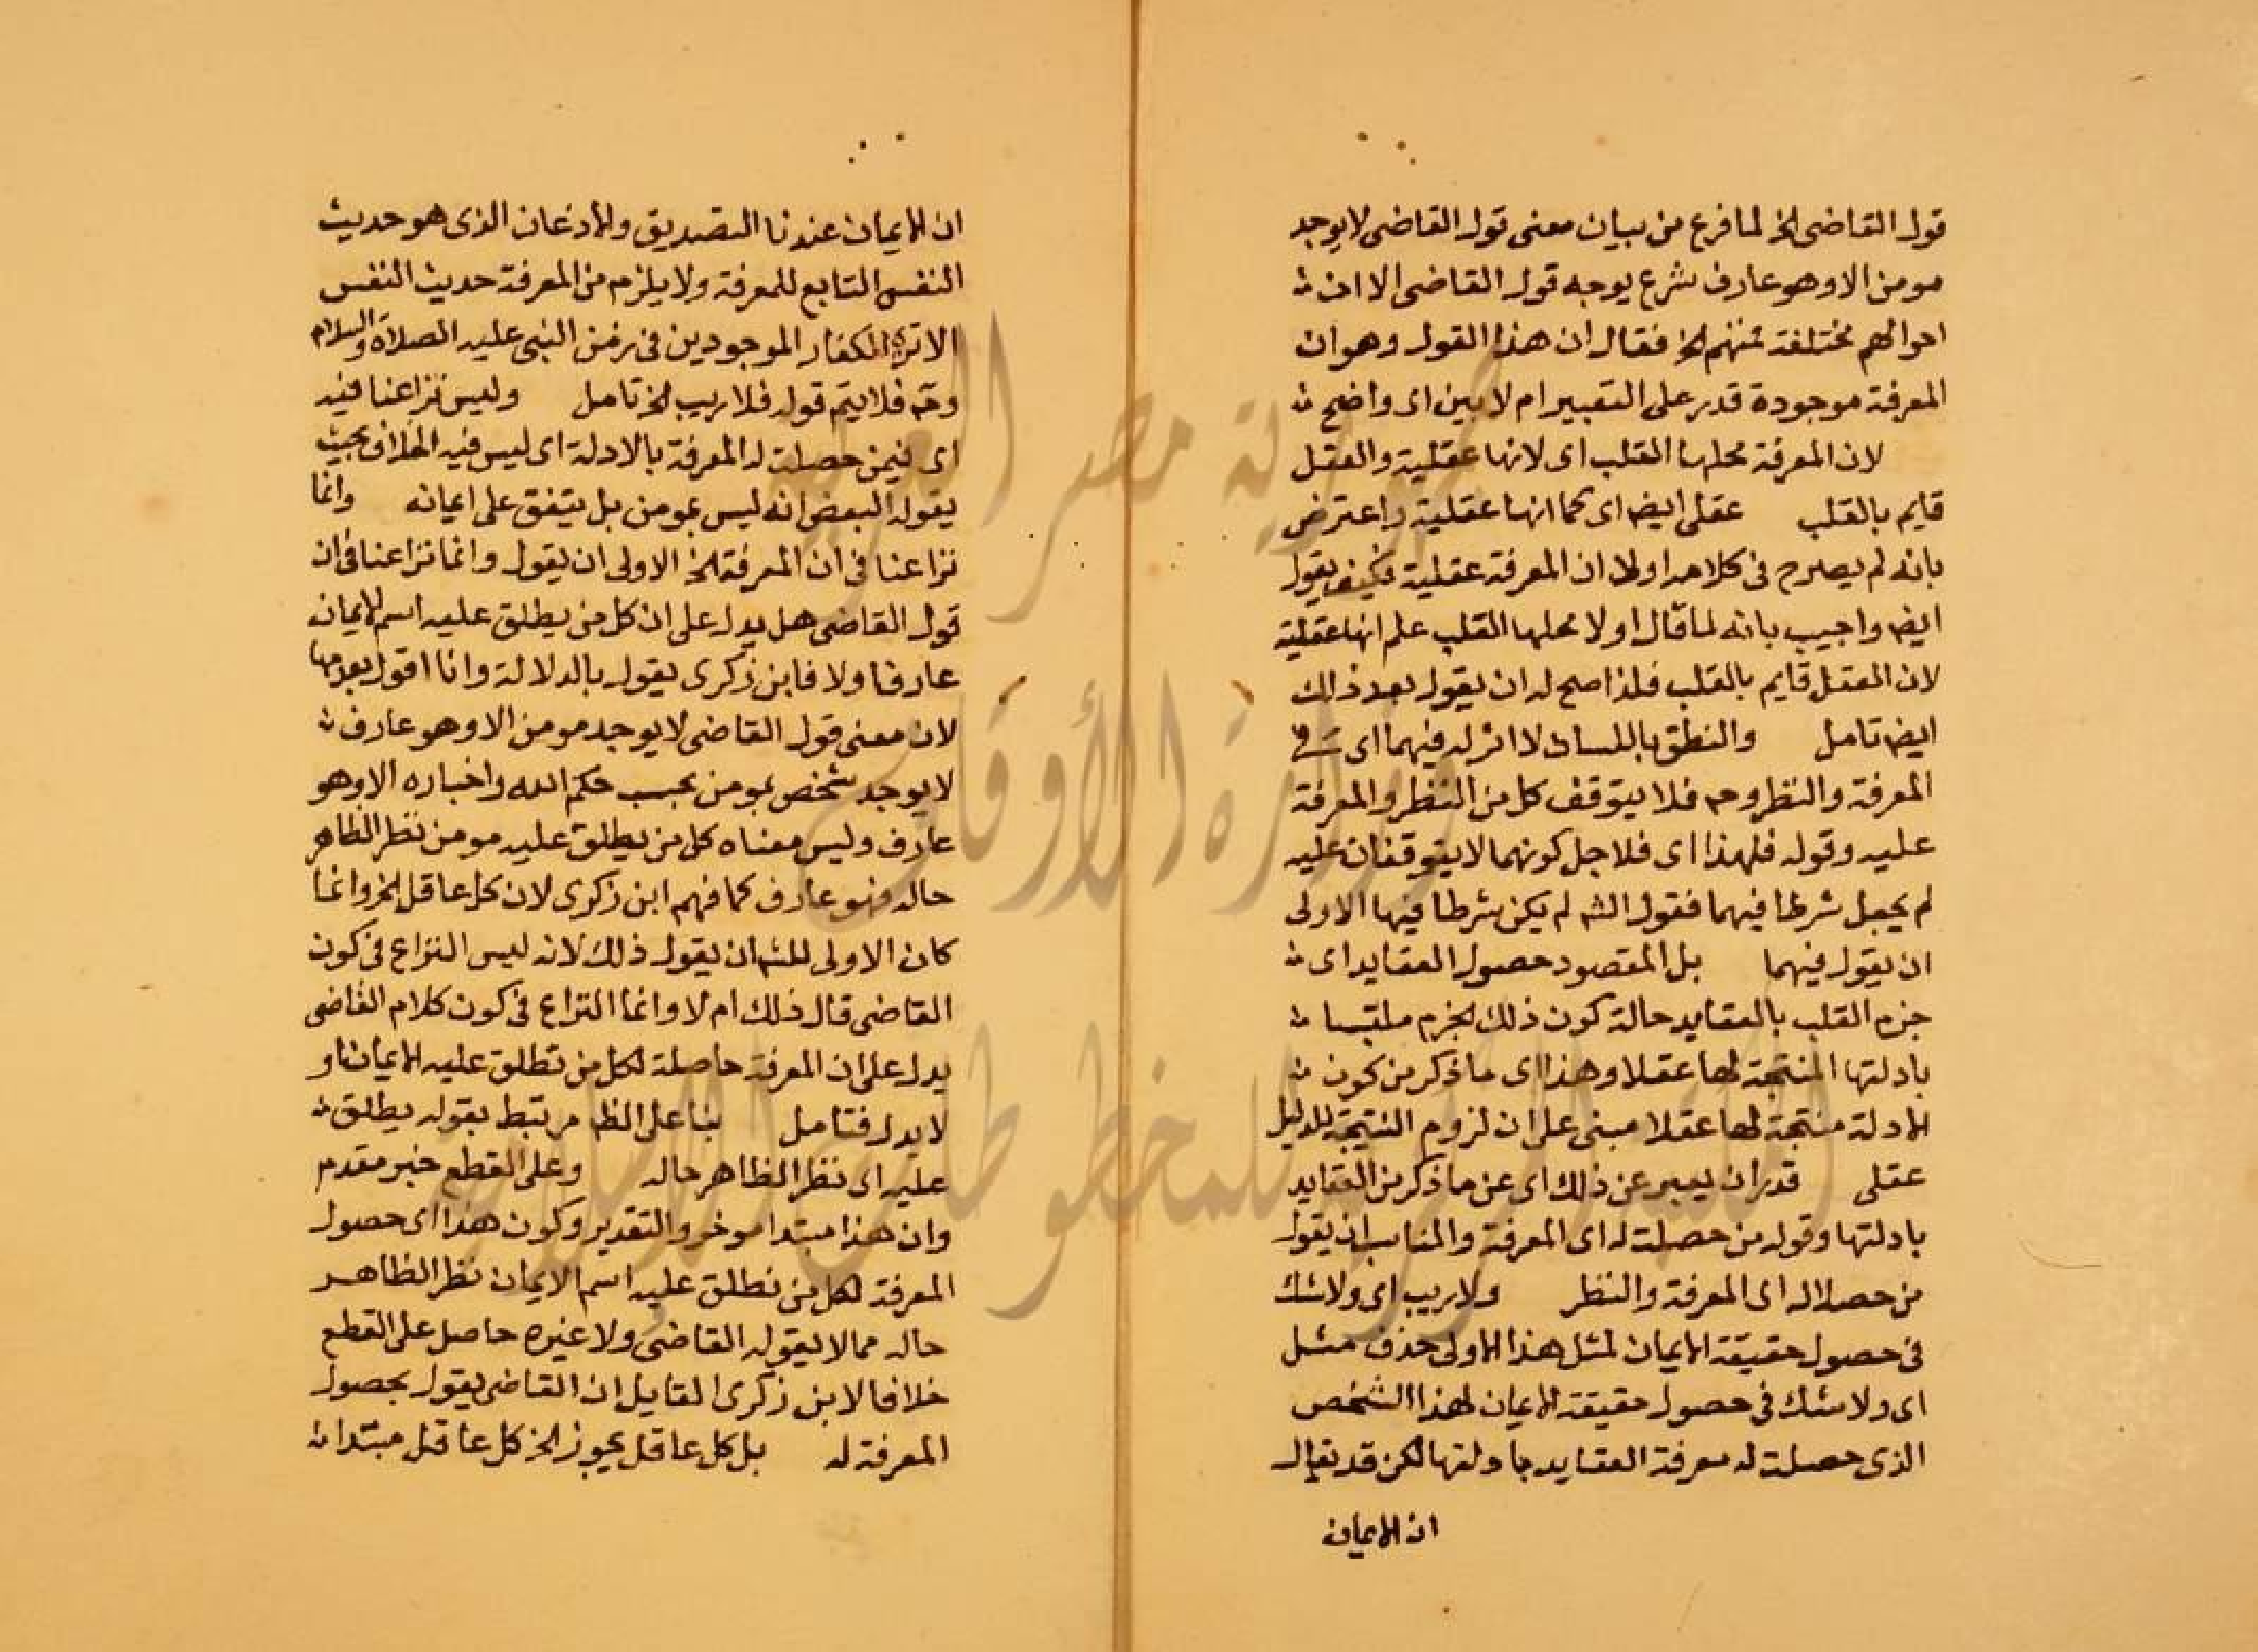 قول القاضى الخ لما فرغ من بيان معنى قول القاضى لا يوجد
مومن الا وهو عارف شرع يوجه قول القاضى الا ان
احوالهم مختلفة فمنهم الخ فقال ان هذا القول وهو ان
المعرفة موجودة قدر على التعبير ام لا بين اى واضح
لان المعرفة محلها القلب اى لانها عقلية والعقل
قايم بالقلب عقلى ايض اى كما انها عقلية واعترض
بانه لم يصرح فى كلامه اولا ان المعرفة عقلية فكيف يقول
ايض واجيب بانه لما قال اولا محلها القلب علم انها عقلية
لان العقل قايم بالقلب فلذا صح له ان يقول بعد ذلك
ايض تامل والنطق باللسان لا اثر له فيهما اى فى
المعرفة والنظر وح فلا يتوقف كل من النظر والمعرفة
عليه وقوله فلهذا اى فلاجل كونهما لا يتوقفان عليه
لم يجعل شرطا فيهما فقول الشه لم يكن شرطا فيها الاولى
ان يقول فيهما بل المقصود حصول العقايد اى
جزم القلب بالعقايد حالة كون ذلك الجزم ملتبسا
بادلتها المنتجة لها عقلا وهذا اى ما ذكر من كون
الادلة منتجة لها عقلا مبنى على ان لزوم النتيجة للدليل
عقلى قدر ان يعبر عن ذلك اى عن ما ذكر من العقايد
بادلتها وقوله من حصلت له اى المعرفة والمناسب ان يقول
من حصلا له اى المعرفة والنظر ولا ريب اى ولا شك
فى حصول حقيقة الايمان لمثل هذا الاولى حذف مثل
اى ولا شك فى حصول حقيقة الايمان لهذا الشخص
الذى حصلت له معرفة العقايد بادلتها لكن قد يقال
ان الايمان
ان الايمان عندنا التصديق والاذعان الذى هو حديث
النفس التابع للمعرفة ولا يلزم من المعرفة حديث النفس
الا ترى الكفار الموجودين فى زمن النبى عليه الصلاة والسلام
وح فلا يتم قوله فلا ريب الخ تامل وليس نزاعنا فيه
اى فيمن حصلت له المعرفة بالادلة اى ليس فيه الخلاف بحيث
يقول البعض انه ليس بمومن بل يتفق على ايمانه وانما
نزاعنا فى ان المعرفة الخ الاولى ان يقول وانما نزاعنا فى ان
قول القاضى هل يدل على ان كل من يطلق عليه اسم الايمان
عارفا ولا فابن زكرى يقول بالدلالة وانا اقول بعدمها
لان معنى قول القاضى لا يوجد مومن الا وهو عارف
لا يوجد شخص بمومن بحسب حكم الله واخباره الا وهو
عارف وليس معناه كل من يطلق عليه مومن نظر الظاهر
حاله فهو عارف كما فهم ابن زكرى لان كل عاقل الخ وانما
كان الاولى للشه ان يقول ذلك لانه ليس النزاع فى كون
القاضى قال ذلك ام لا وانما النزاع فى كون كلام القاضى
يدل على ان المعرفة حاصلة لكل من تطلق عليه الايمان او
لا يدل فتامل بنا على الظه مرتبط بقوله يطلق
عليه اى نظر الظاهر حاله وعلى القطع خبر مقدم
وان هذا مبتدا موخر والتقدير وكون هذا اى حصول
المعرفة لكل من نطلق عليه اسم الايمان نظر الظاهر
حاله مما لا يقوله القاضى ولا غيره حاصل على القطع
خلافا لابن زكرى القايل ان القاضى يقول بحصول
المعرفة له بل كل عاقل يجوز الخ كل عاقل مبتدا
جمهورية مصر العربية
وزارة الأوقاف
المكتبة المركزية للمخطوطات الإسلامية